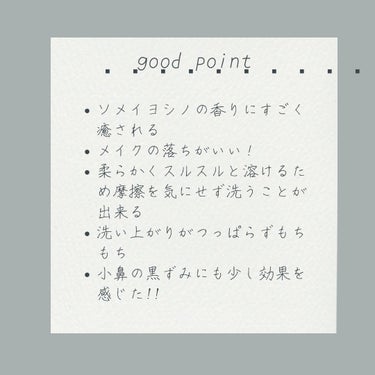 good point
• ソメイヨシノの香りにすごく
癒される
• メイクの落ちがいい！
• 柔らかくスルスルと溶けるた
め摩擦を気にせず洗うことが
出来る
• 洗い上がりがつっぱらずもち
もち
• 小鼻の黒ずみにも少し効果を
感じた!!